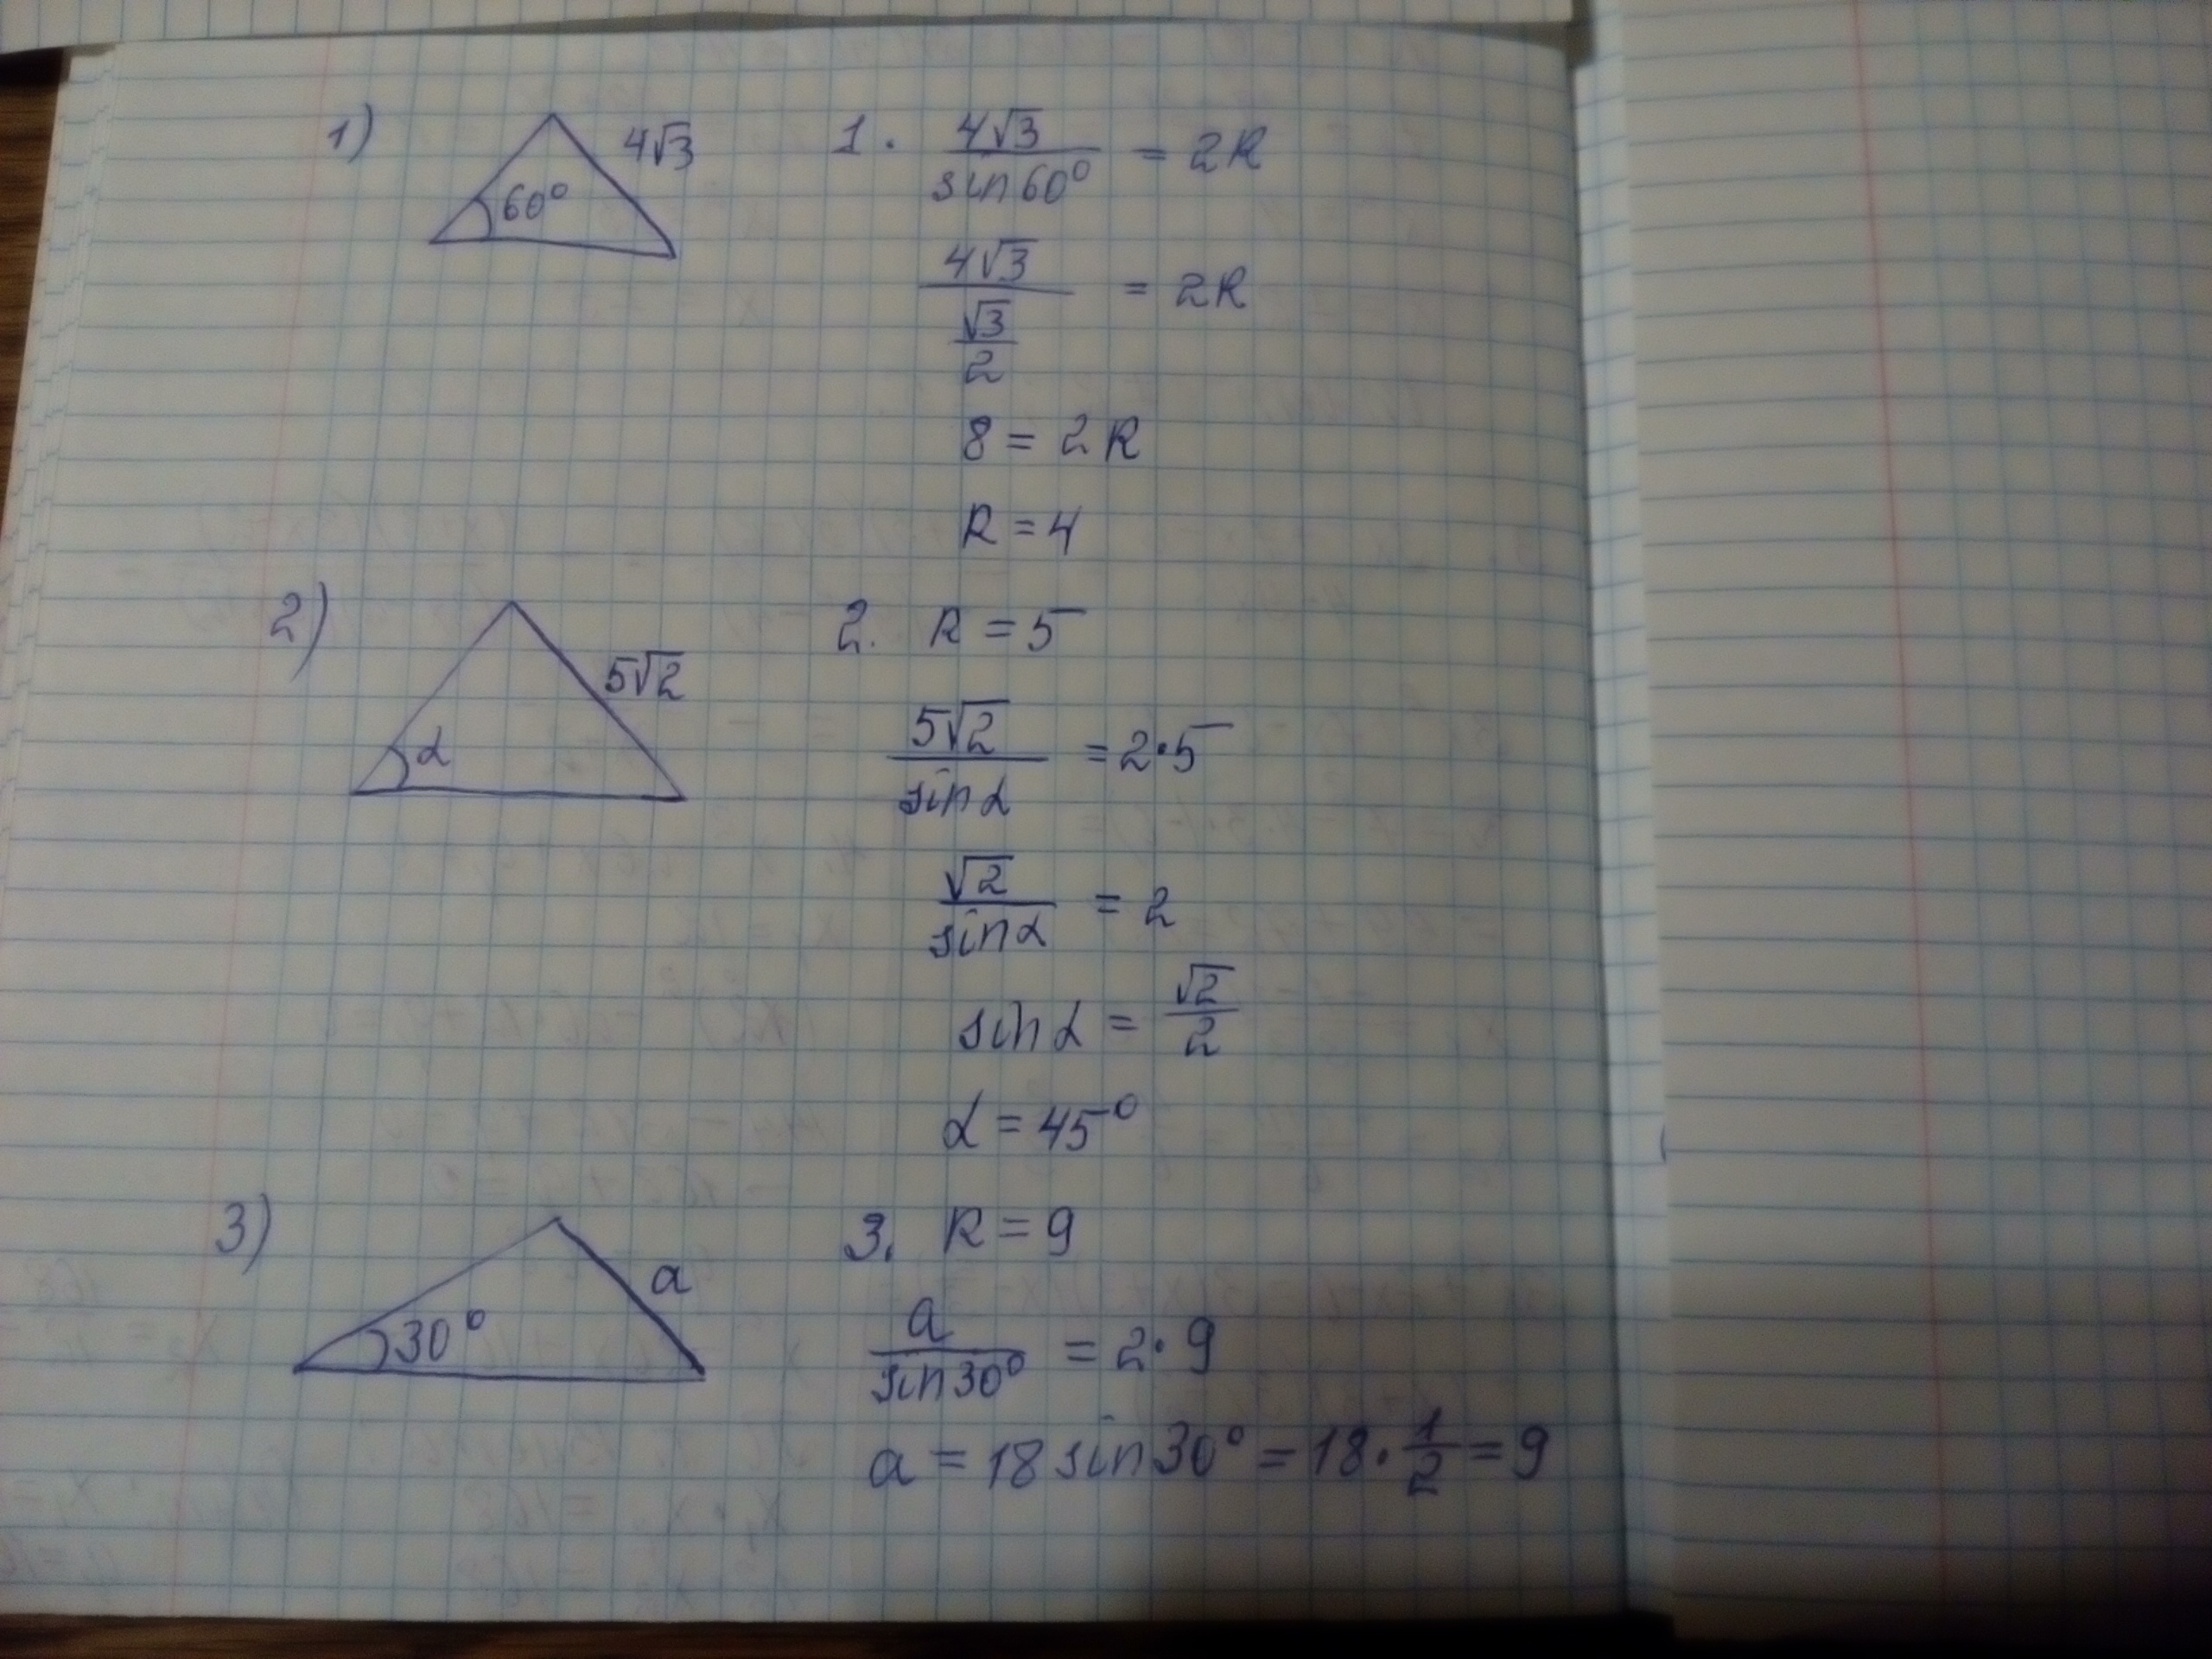 1) 60° 4√3
1. 4√3/sin60° = 2R
4√3/(√3/2) = 2R
8 = 2R
R = 4
2) α 5√2
2. R = 5
5√2/sinα = 2·5
√2/sinα = 2
sinα = √2/2
α = 45°
3) 30° a
3. R = 9
a/sin30° = 2·9
a = 18 sin30° = 18·1/2 = 9